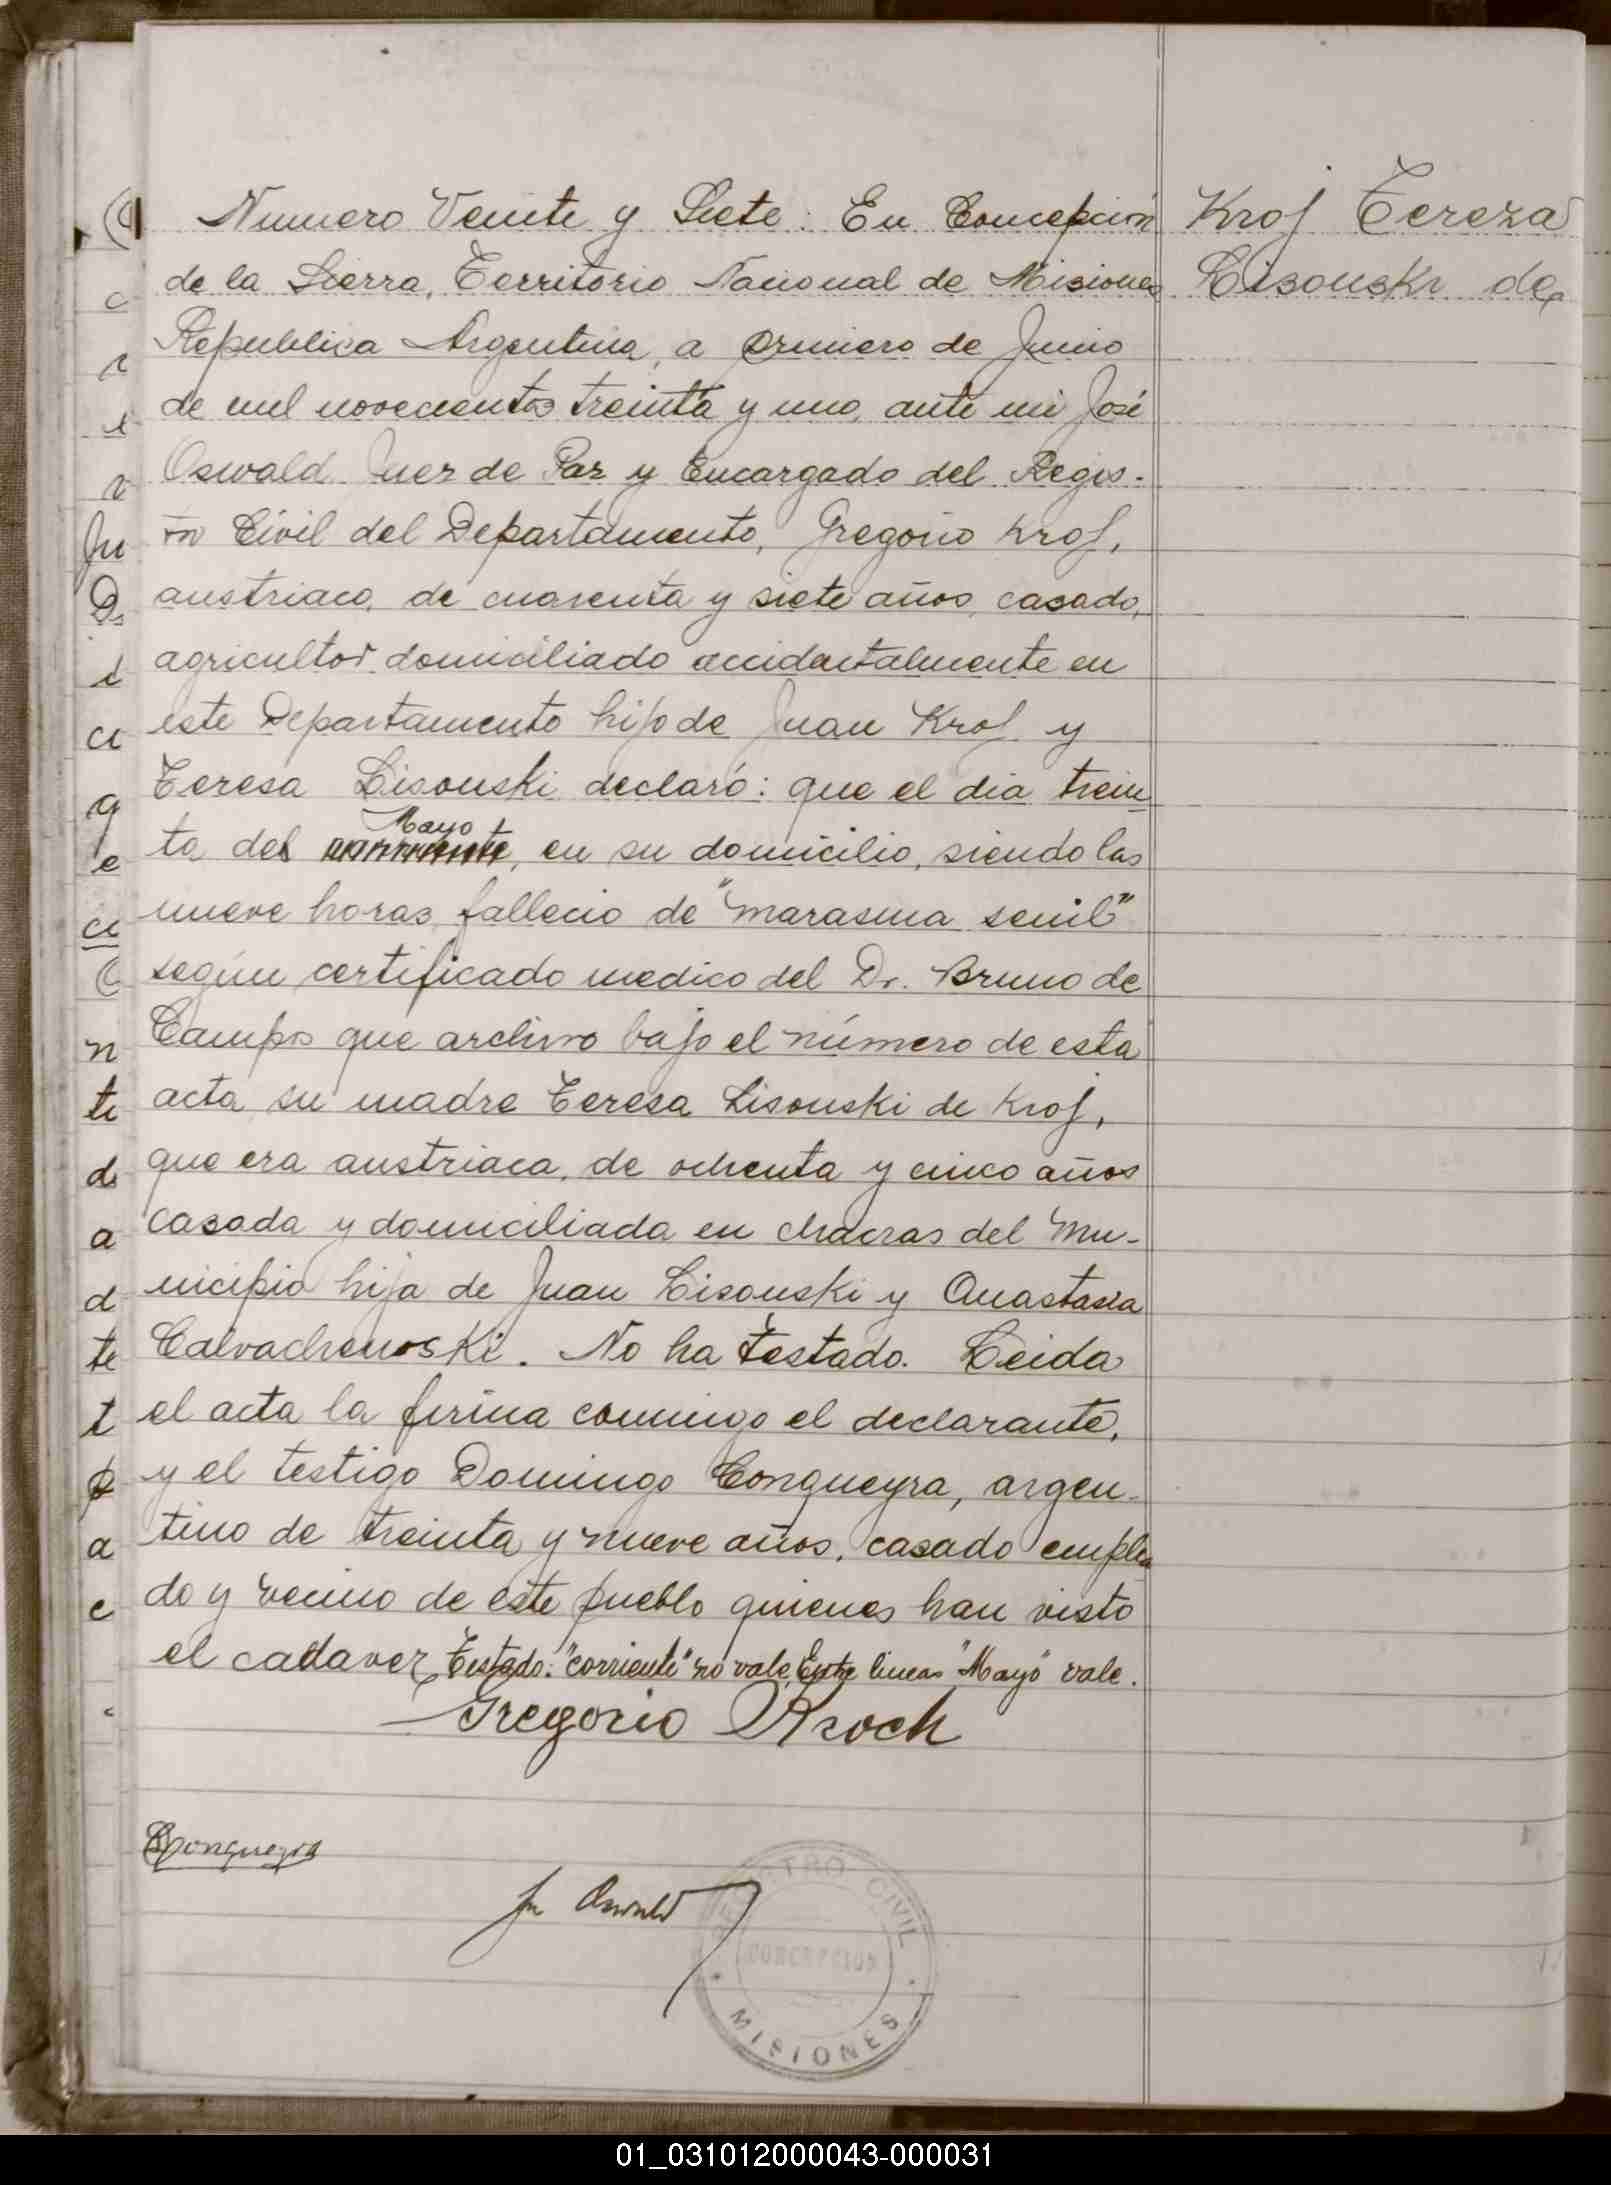 Numero Veinte y Siete: En Concepción
de la Sierra, Territorio Nacional de Misiones
Republica Argentina, a primero de Junio
de mil novecientos treinta y uno, ante mi José
Oswald Juez de Paz y Encargado del Regis-
tro Civil del Departamento, Gregorio Krof,
austriaco, de cuarenta y siete años, casado,
agricultor domiciliado accidentalmente en
este Departamento hijo de Juan Krof y
Teresa Lisouski declaró: que el dia trein
Mayo
ta del corriente, en su domicilio, siendo las
nueve horas, fallecio de "marasma senil"
según certificado medico del Dr. Bruno de
Campos que archivo bajo el número de esta
acta su madre Teresa Lisouski de Krof,
que era austriaca, de ochenta y cinco años
casada y domiciliada en chacras del Mu-
nicipio hija de Juan Lisouski y Anastasia
Calvachenoski. No ha testado. Leida
el acta la firma conmigo el declarante,
y el testigo Domingo Conqueyra, argen-
tino de treinta y nueve años, casado emplea
do y vecino de este pueblo quienes han visto
el cadaver, Testado: "corriente" no vale, Entre lineas "Mayo" vale.
Gregorio Kroch
Conqueyra
Oswald
Krof Tereza
Lisouski de
REGISTRO CIVIL
CONCEPCION
MISIONES
01_031012000043-000031